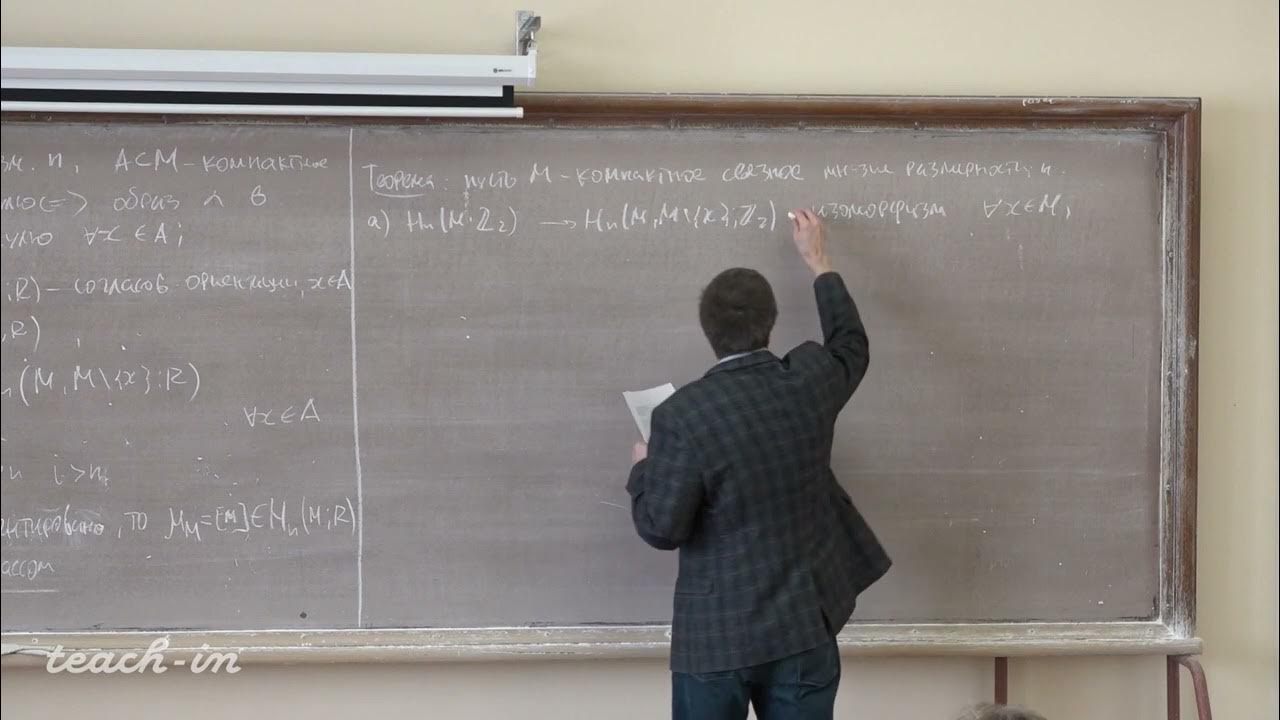 зм. n, A⊂M - компактное
образ α в
∀x∈A;
;R) - соглаcов. ориентации, x∈A
;R) ,
(M, M\{x}; R)
∀x∈A
i>n
, то μ_M=[M]∈H_n(M;R)
ассом
Теорема: пусть M - компактное связное мн-зие размерности n.
а) H_n(M;ℤ_2) → H_n(M, M\{x}; ℤ_2) - изоморфизм ∀x∈M;
teach-in